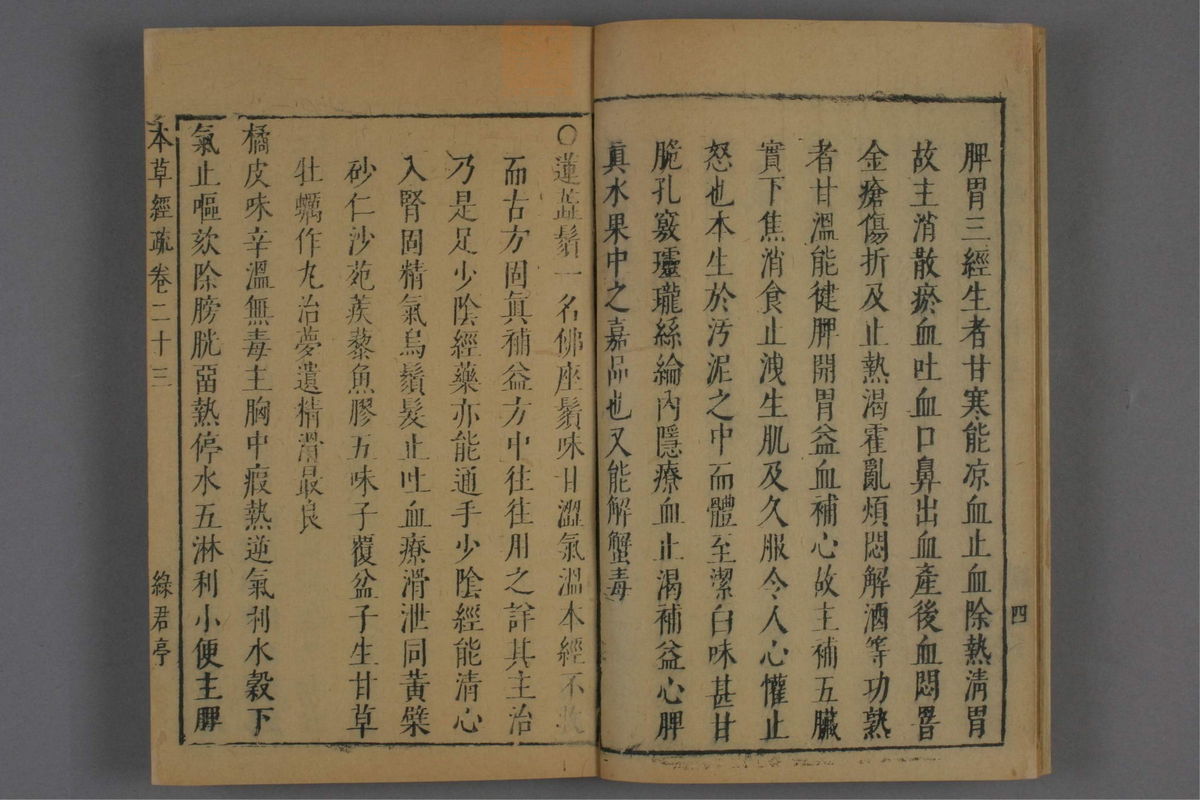 四
脾胃三經生者甘寒能凉血止血除熱淸胃
故主消散瘀血吐血口鼻出血產後血悶罯
金瘡傷折及止熱渴霍亂煩悶解酒等功熟
者甘溫能健脾開胃益血補心故主補五臟
實下焦消食止洩生肌及久服令人心懽止
怒也本生於汚泥之中而體至潔白味甚甘
脆孔竅瓏絲綸內隱療血止渴補益心脾
眞水果中之嘉品也又能解蟹毒
○蓮蕋鬚一名佛座鬚味甘澀氣溫本經不收
而古方固眞補益方中往往用之詳其主治
乃是足少陰經藥亦能通手少陰經能清心
入腎固精氣烏鬚髮止吐血療滑泄同黃檗
砂仁沙苑蒺藜魚膠五味子覆盆子生甘草
牡蠣作丸治夢遺精滑最良
橘皮味辛溫無毒主胸中瘕熱逆氣利水穀下
氣止嘔欬除膀胱留熱停水五淋利小便主脾
本草經疏卷二十三 綠君亭